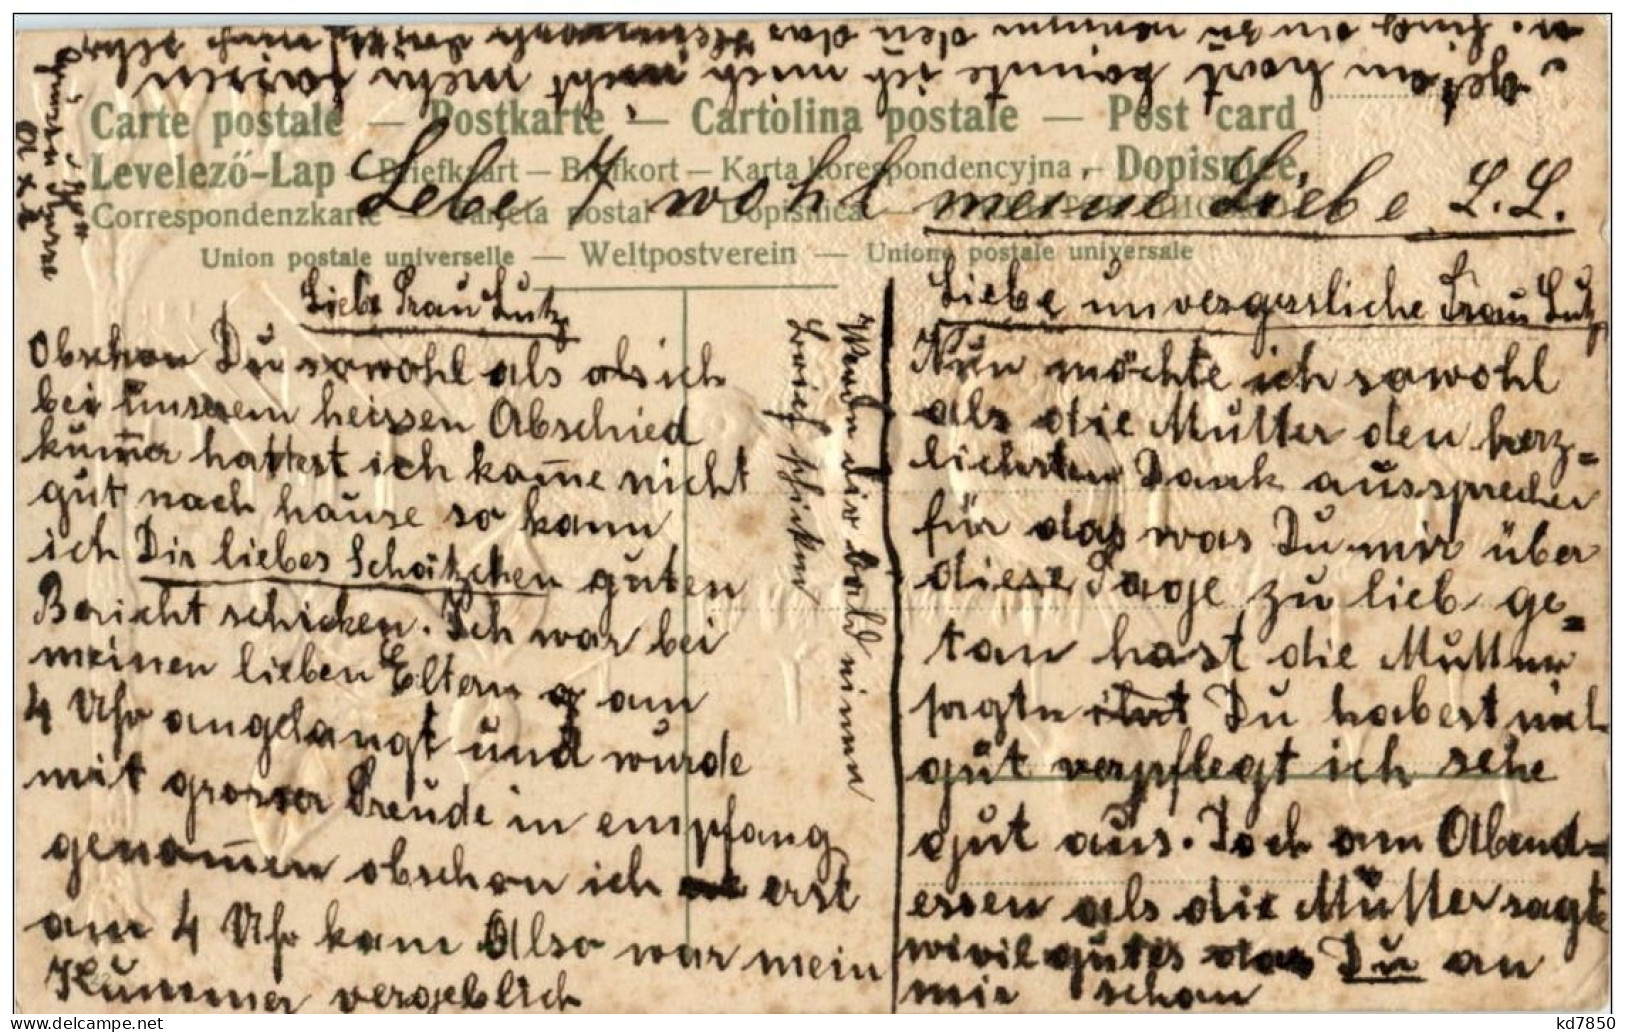 Carte postale — Postkarte — Cartolina postale — Post card
Levelező-Lap — Briefkaart — Brefkort — Karta korespondencyjna — Dopisnice,
Correspondenzkarte — Tarjeta postal — Dopisnica —
Union postale universelle — Weltpostverein — Unione postale universale
Lebe wohl meine Liebe L. L.
Liebe Frau Lutz
Obschon Du sowohl als als ich
bei unserem heissen Abschied
kum̅er hattest ich kom̅e nicht
gut nach hause so kann
ich Dir liebes Schätzchen guten
Bericht schicken. Ich war bei
meinen lieben Eltern am
4 Uhr angelangt und wurde
mit grosser Freude in empfang
genom̅en obschon ich erst
am 4 Uhr kam Also war mein
Kummer vergeblich
Werde dir bald einen
Brief schicken
Liebe unvergessliche Frau Lutz
Nun möchte ich sowohl
als die Mutter den herz=
lichsten Dank aussprechen
für das was Du mir über
diese Tage zu lieb ge=
tan hast die Mutter
sagte Du habest mich
gut verpflegt ich sehe
gut aus. Doch am Abend=
essen als die Mutter sagte
wivil gutes das Du an
mir schon
getan hast konnte ich mich nicht mehr fassen
kd7850